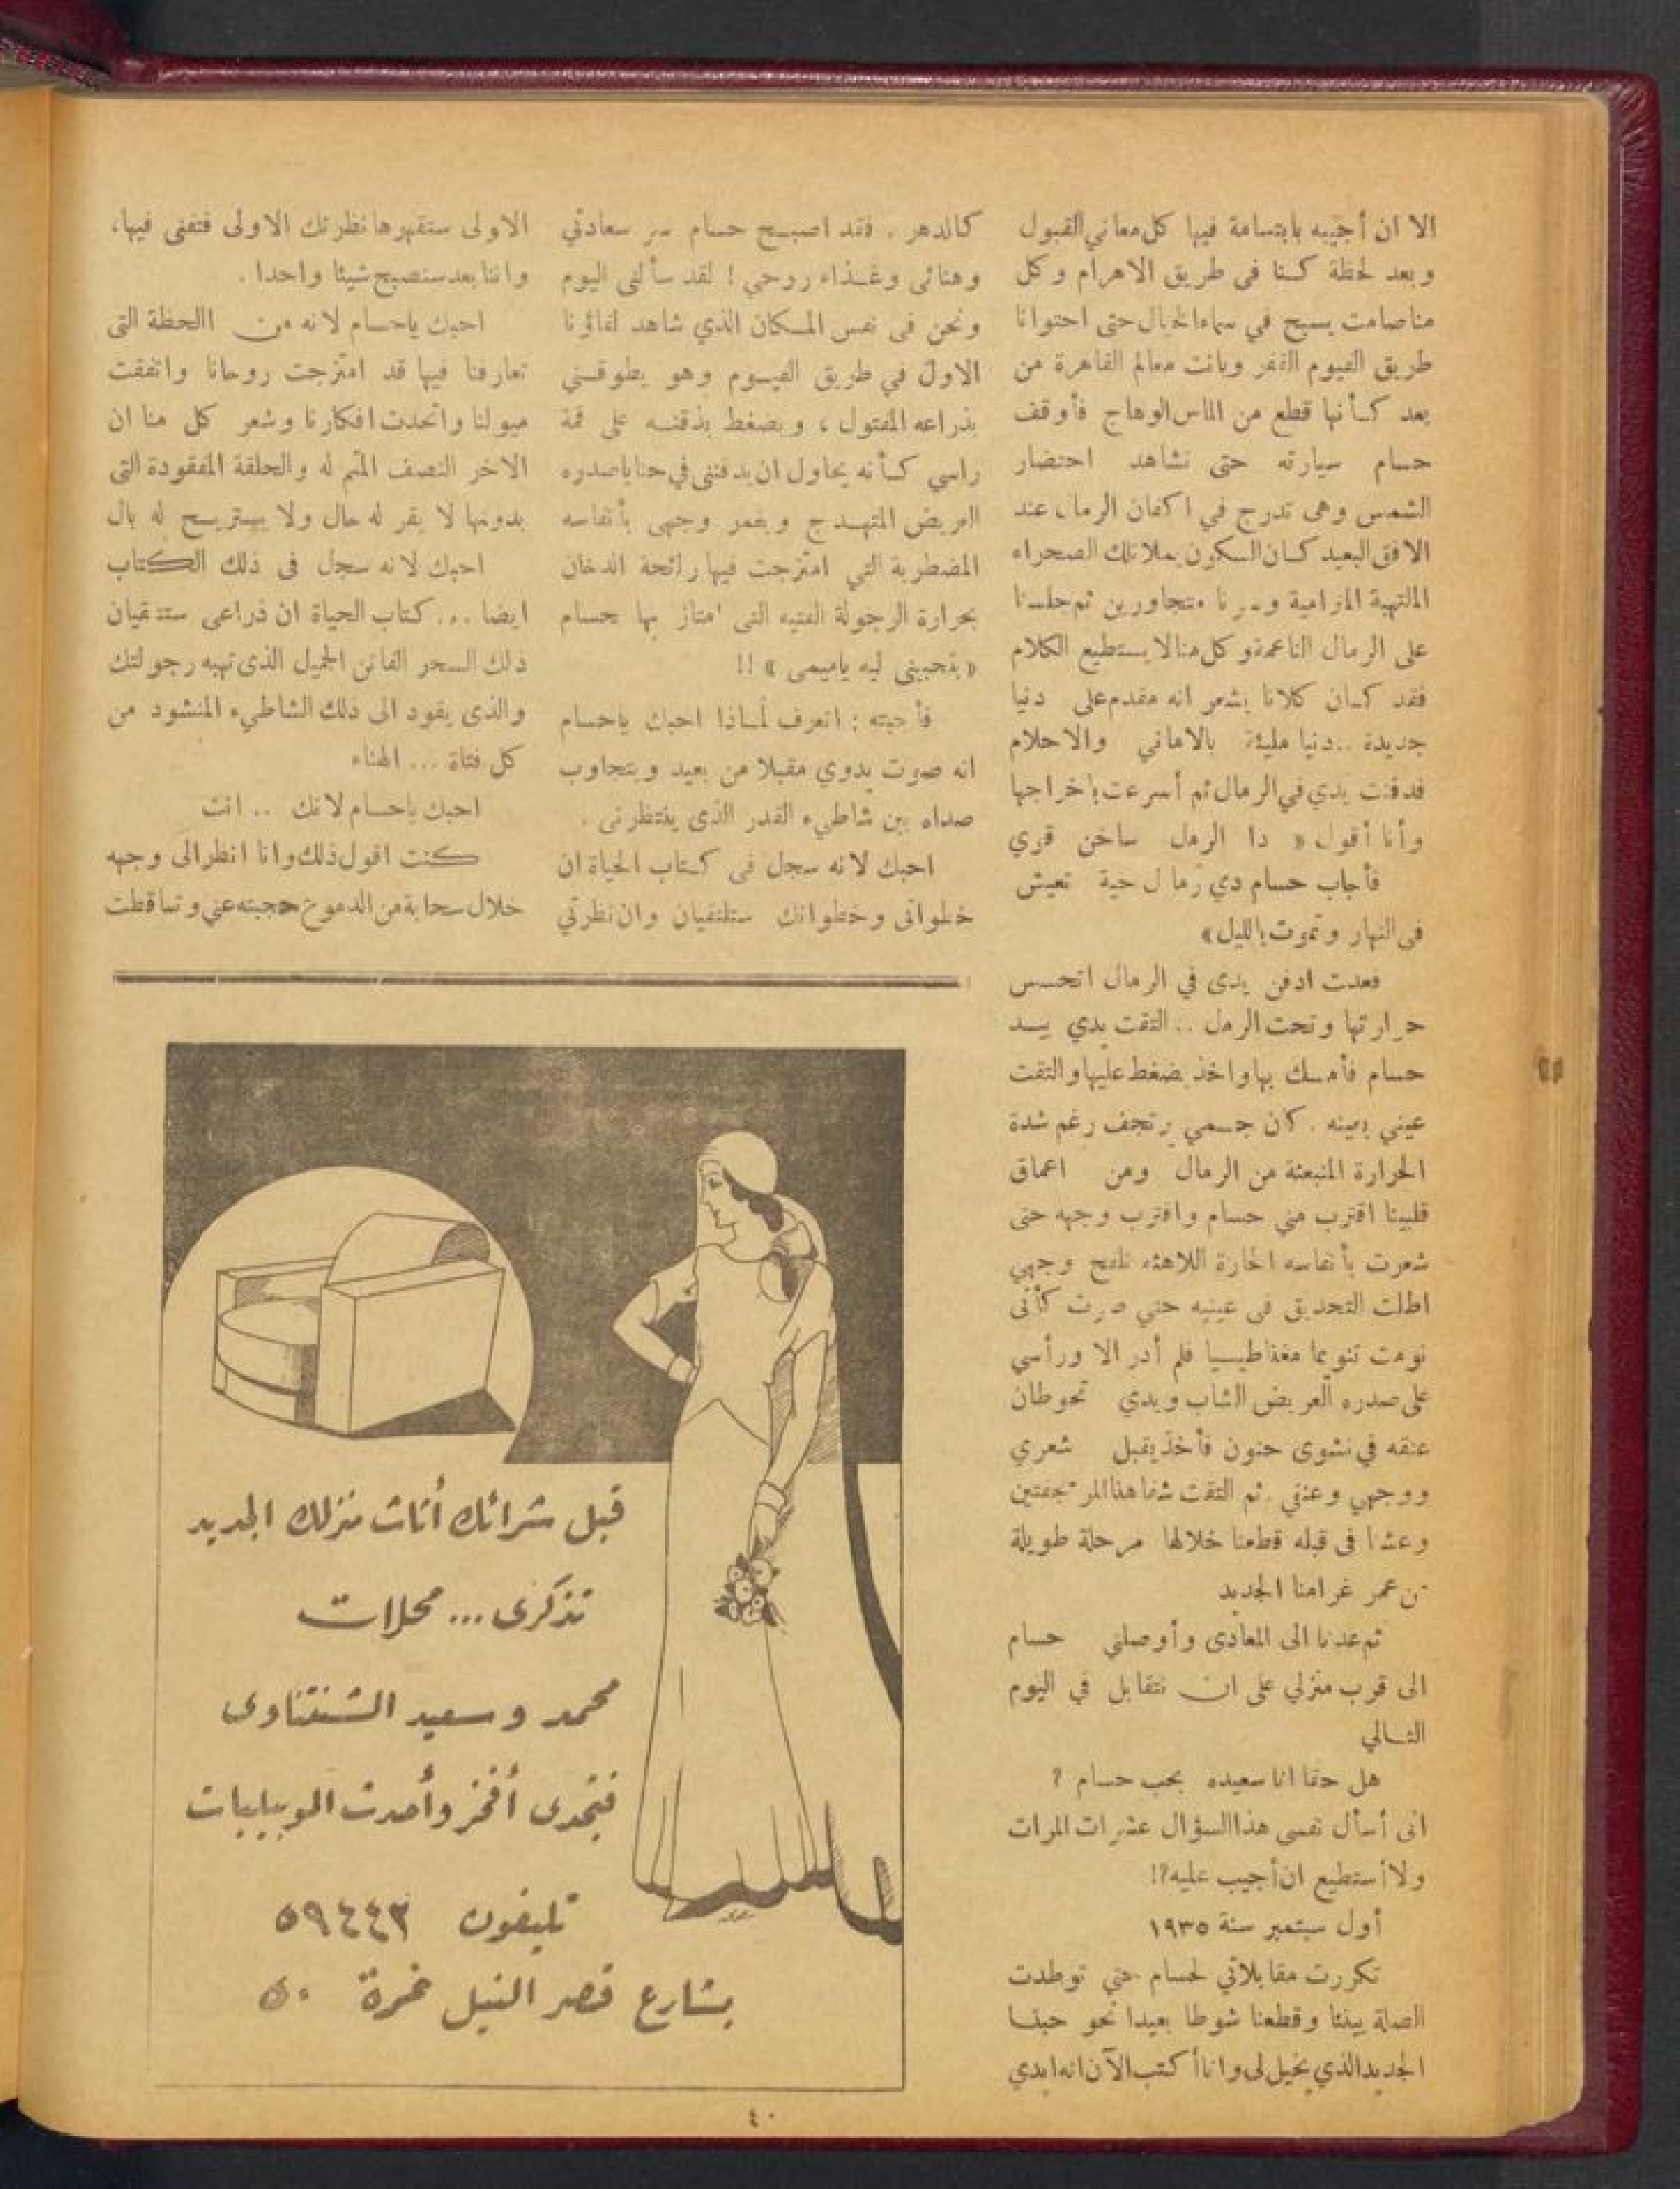 الا ان أجيبه بابتسامة فيها كل معاني القبول
وبعد لحظة كنا فى طريق الاهرام وكل
مناصامت يسبح في سماء الخيال حتى احتوانا
طريق الفيوم القفر وبانت معالم القاهرة من
بعد كأنها قطع من الماس الوهاج فأوقف
حسام سيارته حتى نشاهد احتضار
الشمس وهى تدرج في اكفان الرمال عند
الافق البعيد كان السكون يملأ تلك الصحراء
الملتهبة المترامية وسرنا متجاورين ثم جلسنا
على الرمال الناعمة وكل منا لا يستطيع الكلام
فقد كان كلانا يشعر انه مقدم على دنيا
جديدة .. دنيا مليئة بالاماني والاحلام
فدفنت يدي في الرمال ثم أسرعت باخراجها
وأنا أقول « دا الرمل ساخن قوي
فأجاب حسام دي رمال حية تعيش
فى النهار وتموت بالليل»
فعدت ادفن يدى في الرمال اتحسس
حرارتها وتحت الرمل .. التقت يدي بيد
حسام فأمسك بها واخذ يضغط عليها والتقت
عيني بعينه . كان جسمي يرتجف رغم شدة
الحرارة المنبعثة من الرمال ومن اعماق
قلبينا اقترب مني حسام واقترب وجهه حتى
شعرت بأنفاسه الحارة اللاهثه تلفح وجهي
اطلت التحديق فى عينيه حتي صرت كأنى
نومت تنويما مغناطيسيا فلم أدر الا ورأسي
على صدره العريض الشاب ويدي تحوطان
عنقه في نشوى حنون فأخذ يقبل شعري
ووجهي وعنقي . ثم التقت شفاهنا المرتجفتين
وعشنا فى قبله قطعنا خلالها مرحلة طويلة
من عمر غرامنا الجديد
ثم عدنا الى المعادى وأوصلني حسام
الى قرب منزلي على ان نتقابل في اليوم
التالي
هل حقا انا سعيده بحب حسام ؟
انى أسأل نفسى هذا السؤال عشرات المرات
ولا أستطيع ان أجيب عليه؟!
أول سبتمبر سنة ١٩٣٥
تكررت مقابلاتي لحسام حتي توطدت
الصلة بيننا وقطعنا شوطا بعيدا نحو حبنا
الجديد الذي يخيل لى وانا أكتب الآن انه ابدي
كالدهر . فقد اصبح حسام سر سعادتي
وهنائى وغذاء روحي ! لقد سألنى اليوم
ونحن فى نفس المكان الذي شاهد لقاؤنا
الاول في طريق الفيوم وهو يطوقني
بذراعه المفتول ، ويضغط بذقنه على قمة
راسي كأنه يحاول ان يدفننى في حنايا صدره
العريض المتهدج ويغمر وجهى بأنفاسه
المضطربة التي امتزجت فيها رائحة الدخان
بحرارة الرجولة الفتيه التى امتاز بها حسام
« بتحبينى ليه ياميمى » !!
فأجبته : اتعرف لماذا احبك ياحسام
انه صوت يدوي مقبلا من بعيد ويتجاوب
صداه بين شاطىء القدر الذى ينتظرنى .
احبك لانه سجل فى كتاب الحياة ان
خطواتى وخطواتك ستلتقيان وان نظرتي
الاولى ستقهرها نظرتك الاولى فتفنى فيها،
واننا بعد سنصبح شيئا واحدا .
احبك ياحسام لانه من االحظة التى
تعارفنا فيها قد امتزجت روحانا واتفقت
ميولنا واتحدت افكارنا وشعر كل منا ان
الاخر النصف المتم له والحلقة المفقودة التى
بدونها لا يقر له حال ولا يستريح له بال
احبك لانه سجل فى ذلك الكتاب
ايضا ... كتاب الحياة ان ذراعى ستنتقيان
ذلك السحر الفاتن الجميل الذى تهبه رجولتك
والذى يقود الى ذلك الشاطىء المنشود من
كل فتاة ... الهناء
احبك ياحسام لانك .. انت
كنت اقول ذلك وانا انظر الى وجهه
خلال سحابة من الدموع حجبته عني وتساقطت
قبل شرائك أثاث منزلك الجديد
تذكرى ... محلات
محمد وسعيد الشنتناوى
فتجدى أفخر وأحدث الموبيليات
تليفون ٥٩٤٤٣
بشارع قصر النيل نمرة ٥٠
٤٠